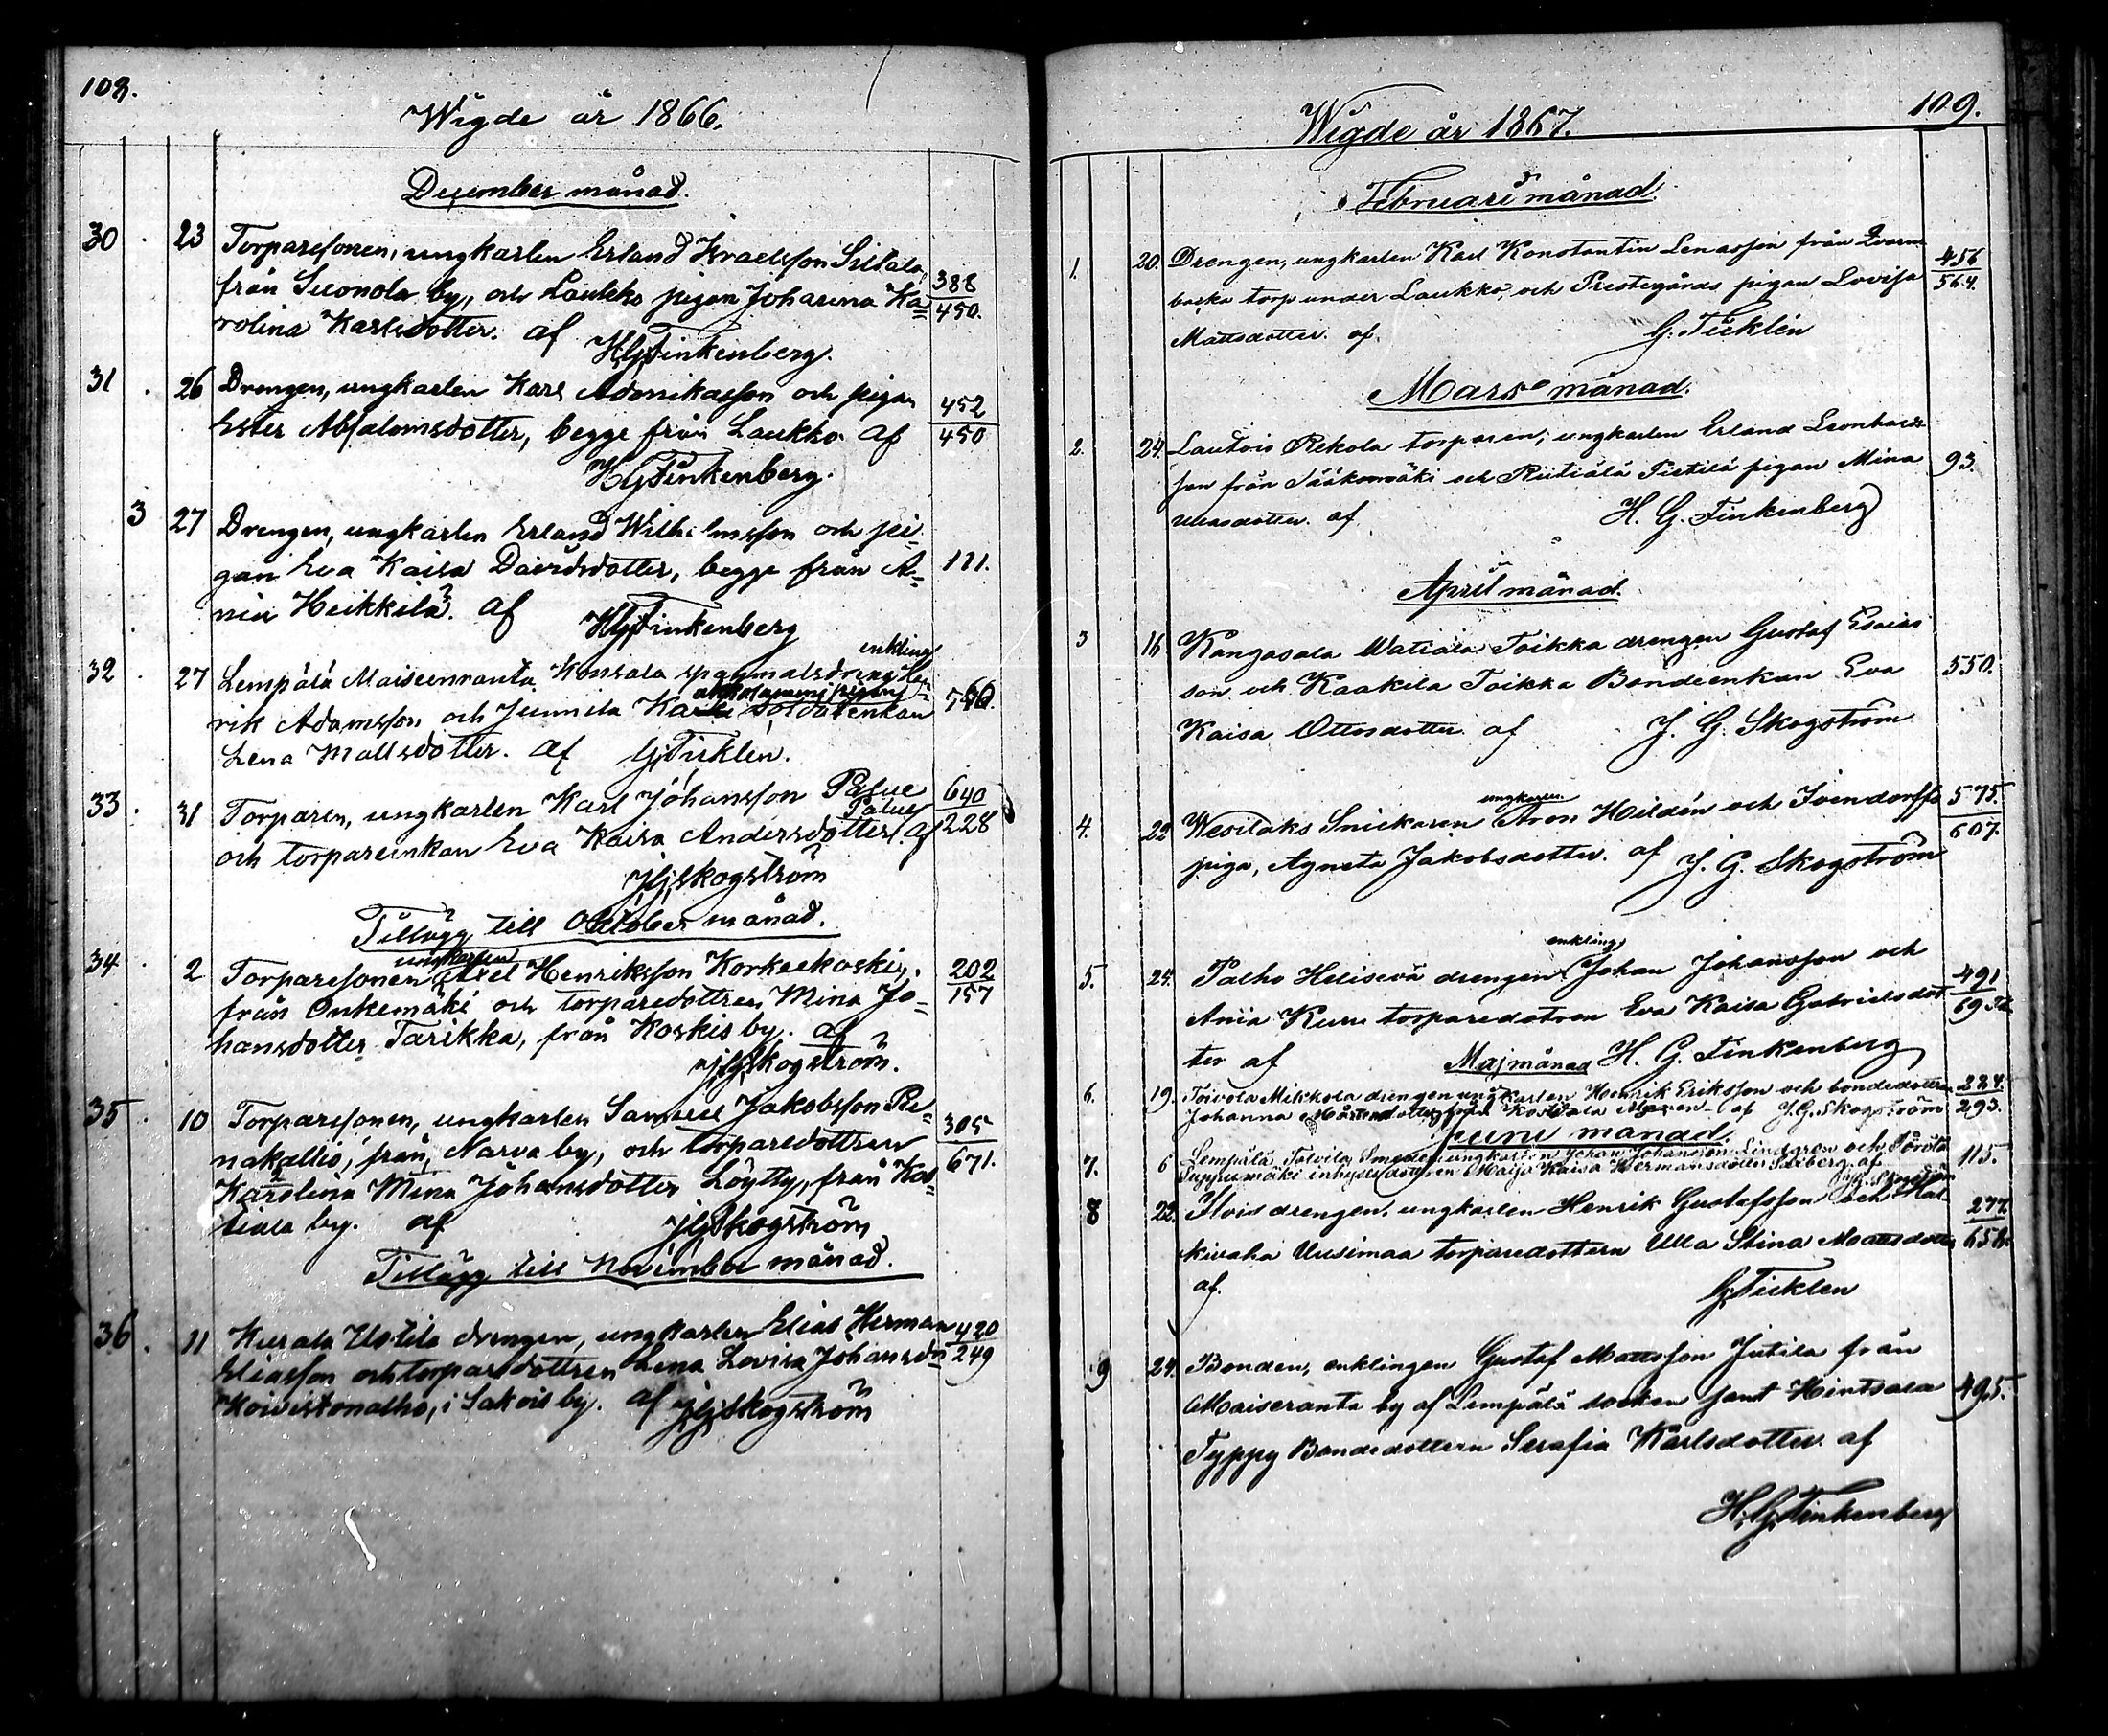 108.
Wigde år 1866.
December månad.
30 . 23 Torparesonen, ungkarlen Erland Israelsson Siltala,
från Suonola by, och Laukko pigan Johanna Ka= 388
rolina Karlsdotter. af 450.
H G Finkenberg.
31 . 26 Drengen, ungkarlen Karl Adamikasson och pigan 452
Ester Absalomsdotter, begge från Laukko af 450
H G Finkenberg.
3 27 Drengen, ungkarlen Erland Wilhelmsson och pi=
gan Eva Kaisa Davidsdotter, begge från A= 111.
nia Heikkilä. af
H G Finkenberg
enkling
32 . 27 Lempälä Maisenranta Konsala spanmålsdreng Hen=
rik Adamsson och Junnila soldatenkan
Lena Mattsdotter. af G. Ticklén.
33 . 31 Torparen, ungkarlen Karl Johansson Palue 640
Palue
och torpareenkan Eva Kaisa Andersdotter. af 228
J G Skogström
Tillägg till Oktober månad.
ungkarlen
34 . 2 Torparesonen Axel Henriksson Korkeekoski, 202
från Onkemäki och torparedottren Mina Jo= 157
hansdotter Tarikka, från Koskis by. af
J G Skogström.
35 . 10 Torparesonen, ungkarlen Samuel Jakobsson Pu= 305
nakallio, från Narva by, och torparedottren 671.
Karolina Mina Johansdotter Löytty, från Kos=
tiala by. af J G Skogström
Tillägg till November månad.
36 . 11 Kurala Ustila drengen, ungkarlen Elias Herman 420
Eliasson och torparedottren Lena Lovisa Johansdr 249
Koivistonalho, i Sakois by. af J G Skogström
109.
Wigde år 1867.
Februari månad.
1. 20. Drengen, ungkarlen Karl Konstantin Lenasson från Qvarn 456
backa torp under Laukko, och Prestegårds pigan Lovisa 564.
Mattsdotter. af. G. Ticklén
Mars månad.
2. 24. Lautois Rekola torparen, ungkarlen Erland Leonhards
son från Jääkonmäki och Riitiälä Tietilä pigan Mina 93.
H. G. Finkenberg
April månad.
3 16 Kangasala Watiala Toikka drengen Gustaf Esaias
son och Kaakila Toikka Bondeenkan Eva 550.
Kaisa Ottosdotter af J. G. Skogström
ungkarlen
4. 22 Wesilaks Snickaren Aron Heldén och Ivendorffs 575.
piga, Agneta Jakobsdotter. af J. G. Skogström 607.
enkling
5. 24. Palho Heliseva drengen Johan Johansson och 491
Ania Kuru torparedotren Eva Kaisa Gabrielsdot
ter af H. G. Finkenberg
Maj månad
6. 19. Toivola Mikkola drengen ungkarlen Henrik Eriksson och bondedottren 284.
Johanna Mårtensdotter från Kostiala af J. G. Skogström 293.
Juni månad.
7. 6 Lempälä Tolvila Smeden ungkarlen Johan Johansson Lindgren och 115.
inhysesdottren Maija Kaisa Hermansdotter af
8 22. Ilois drengen, ungkarlen Henrik Gustafsson och 277.
kivaha Uusimaa torparedottern Ulla Stina Mattsdotter 658.
af. G Ticklen
9 24. Bonden, enklingen Gustaf Mattsson Jutila från
Maiseranta by af Lempälä socken samt Hintsala 495.
Typpy Bondedottern Serafia Karlsdotter af
H. G. Finkenberg